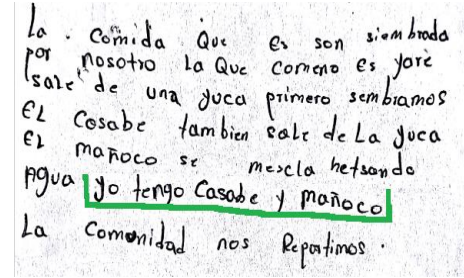 La comida que es son siembrada
por nosotro La Que comeno es yare
sale de una yuca primero sembramos
EL Casabe tambien sale de La yuca
EL mañoco se mezcla hetsando
Agua yo tengo Casabe y mañoco
La Comunidad nos Repartimos.